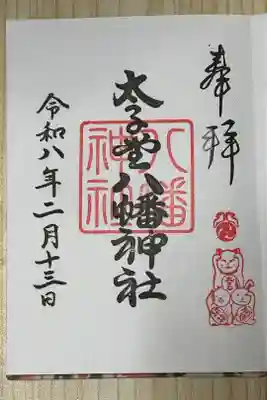 奉拝
太子堂八幡神社
八幡神社
令和八年二月十三日